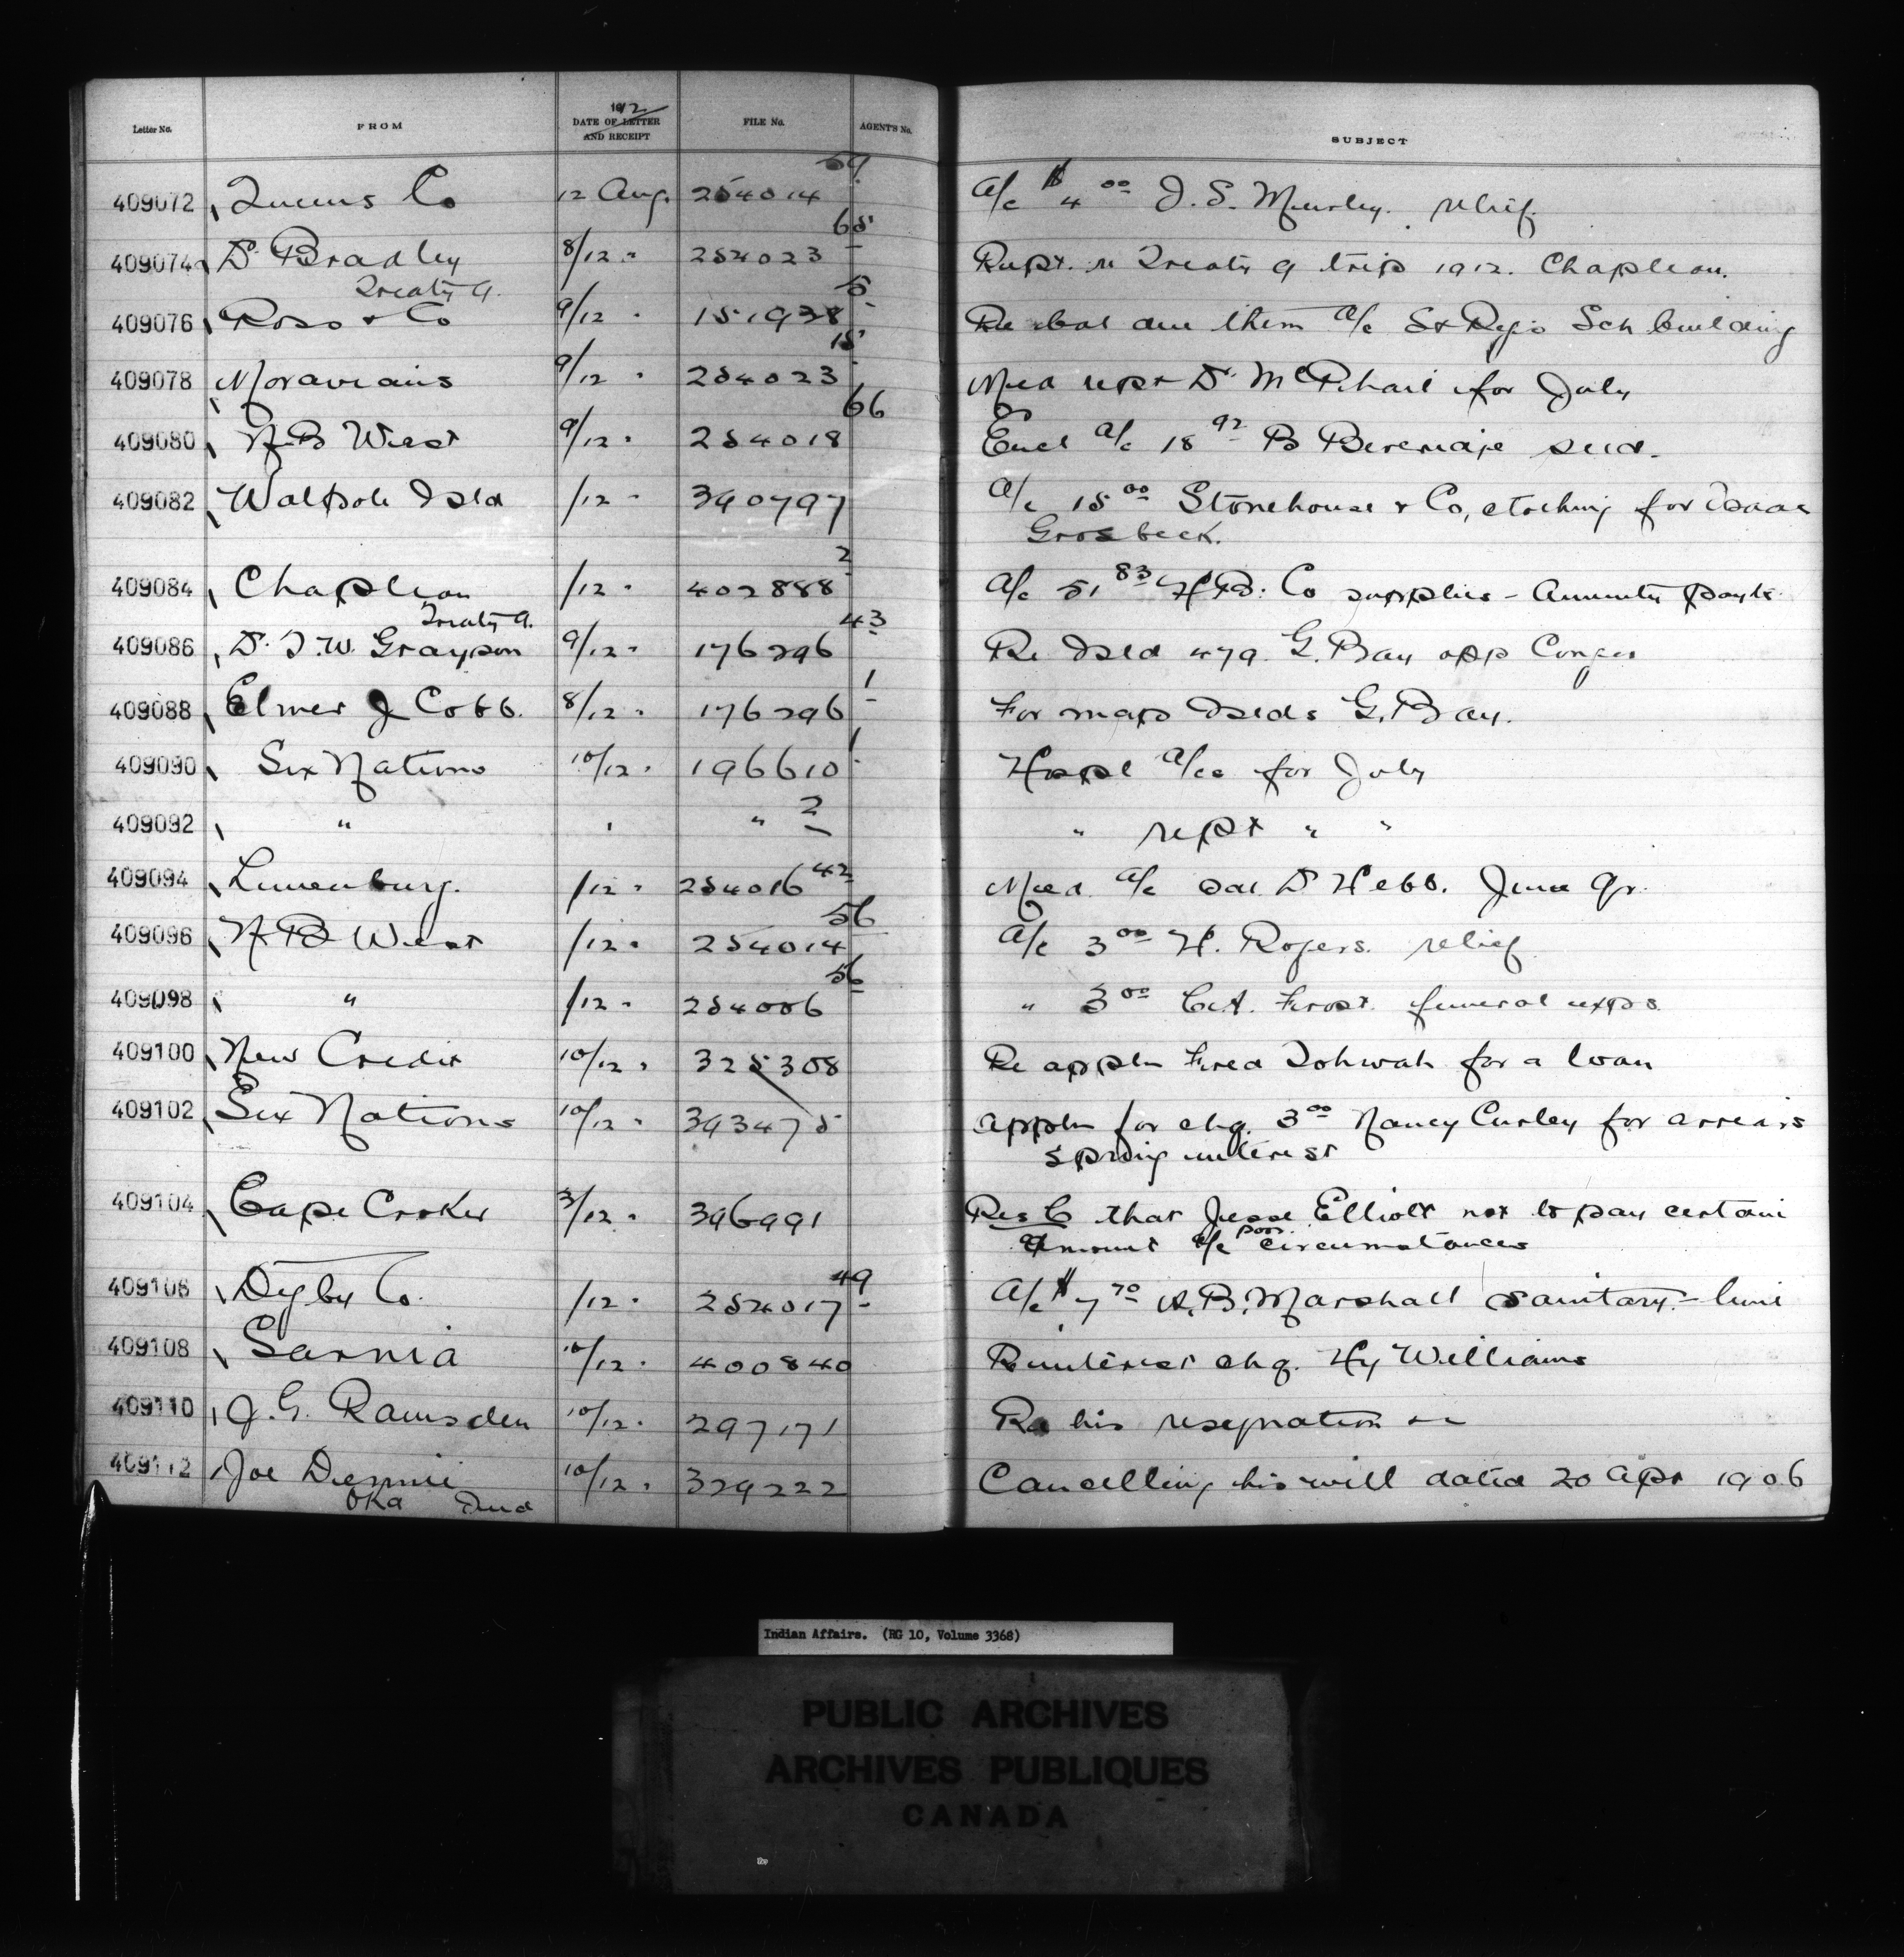 Letter No. FROM 1912 DATE OF LETTER AND RECEIPT FILE No. AGENT'S No. SUBJECT
409072 Queens Co 12 Aug. 254014 59 A/c $4 00 J. S. relief.
409074 Dr Bradley 8/12 " 254023 65 Rept. re Treaty 9 trip 1912. Chapleau.
Treaty 9.
409076 Ross & Co 9/12 " 151938 5 Re bal due them a/c St Regis Sch building
409078 Moravians 9/12 " 254023 15 Med rept Dr McPhail for July
409080 N B West 9/12 " 254018 66 Encl a/c 18 92 B Beveridge seed.
409082 Walpole Isld /12 " 390797 A/c 15 00 Stonehouse & Co, for Isaac
Grosbeck.
409084 Chapleau /12 " 402888 2 A/c 51 83 H.B. Co supplies - Annuity payts
Treaty 9.
409086 Dr. T. W. Grayson 9/12 " 176296 43 Re Isld 479. G. Bay opp Conger
409088 Elmer J Cobb. 8/12 " 176296 1 For map Islds G. Bay.
409090 Six Nations 10/12 " 196610 1 Hospl a/cs for July
409092 " " " 2 " rept " "
409094 Lunenburg. /12 " 254016 42 Med. a/c sal. Dr Hebb. June Qr.
409096 N B West /12 " 254014 56 A/c 3 00 H. Rogers. relief
409098 " /12 " 254006 56 " 3 00 Frost. funeral exps.
409100 New Credit 10/12 " 325308 Re appln Fred Tobwah for a loan
409102 Six Nations 10/12 " 393475 appln for chq. 3 00 Nancy Curley for arrears
spring interest
409104 Cape Croker 3/12 " 396991 Res C that Jesse Elliott not to pay certain
amount a/c poor circumstances
409106 Digby Co. /12 " 254017 49 A/c $7 70 A. B. Marshall sanitary - lime
409108 Sarnia 10/12 " 400840 Re interest chq. Hy Williams
409110 J. G. Ramsden 10/12 " 297171 Re his resignation &c
409112 Joe Dennie 10/12 " 329222 Cancelling his will dated 20 Apr 1906
Oka Ind
Indian Affairs. (RG 10, Volume 3368)
PUBLIC ARCHIVES
ARCHIVES PUBLIQUES
CANADA